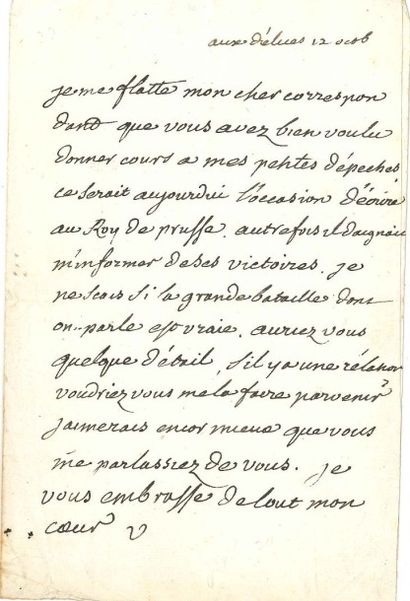 aux délices 12 octob
je me flatte mon cher correspon
dant que vous avez bien voulu
donner cours a mes petites dépeches,
ce serait aujourdui l'occasion d'écrire
au Roy de prusse. autrefois il daignait
m'informer de ses victoires. je
ne scais si la grande bataille dont
on parle est vraie. auriez vous
quelque détail, s'il y a une rélation
voudriez vous me la faire parvenir?
j'aimerais encor mieux que vous
me parlassiez de vous. je
vous embrasse de tout mon
cœur V